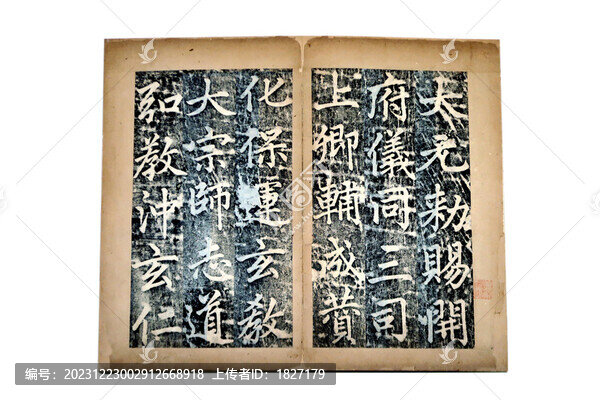 大元勅賜開
府儀同三司
上卿輔成賛
化保運玄教
大宗師志道
弘教沖玄仁
编号：20231223002912668918 上传者ID：1827179